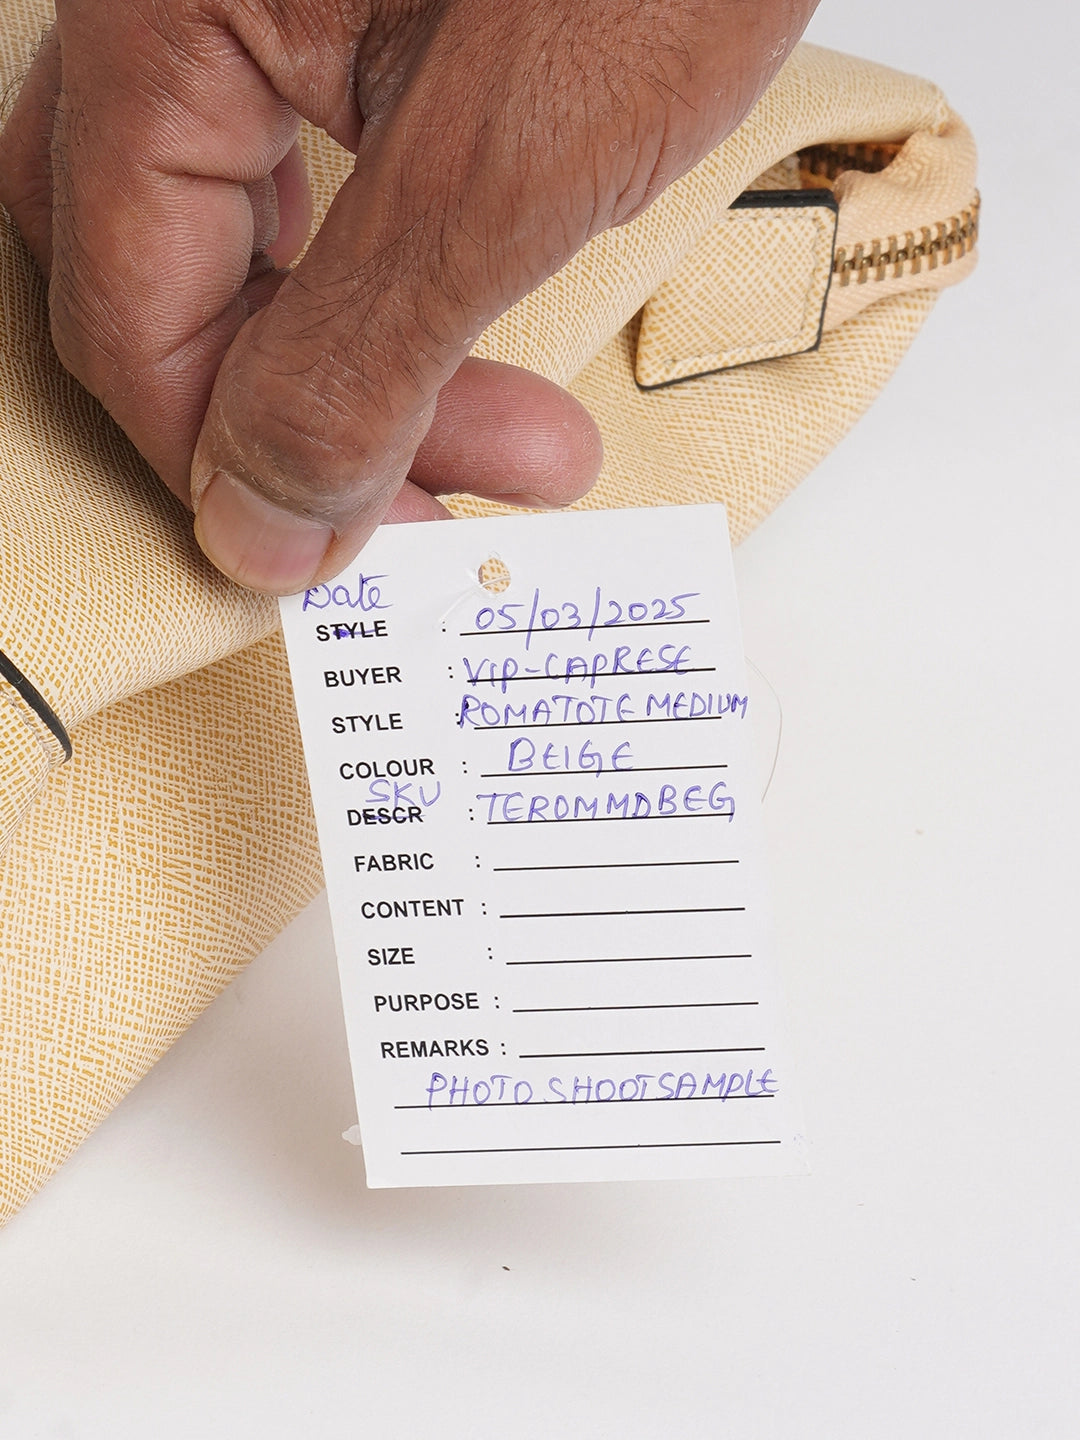 Date
STYLE : 05/03/2025
BUYER : VIP-CAPRESE
STYLE : ROMATOTE MEDIUM
COLOUR : BEIGE
SKU
DESCR : TEROMMDBEG
FABRIC :
CONTENT :
SIZE :
PURPOSE :
REMARKS :
PHOTO SHOOT SAMPLE